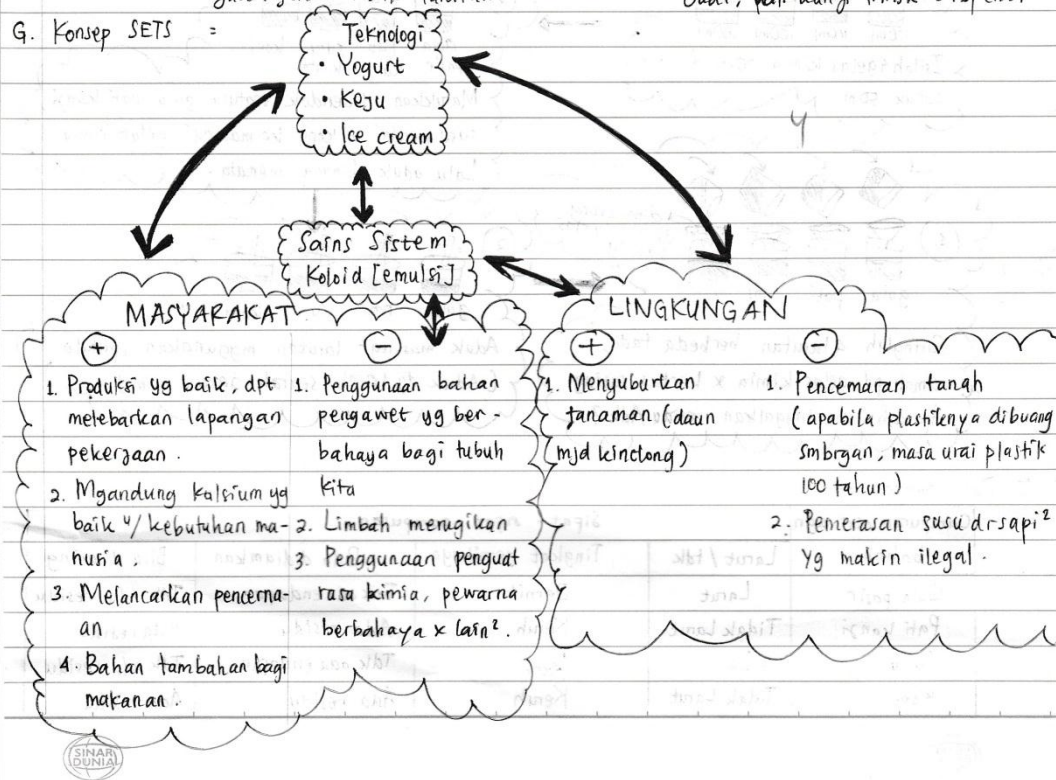 G. Konsep SETS =
Teknologi
• Yogurt
• Keju
• Ice cream
Sains Sistem
Koloid [emulsi]
MASYARAKAT
+
1. Produksi yg baik, dpt
melebarkan lapangan
pekerjaan.
2. Mgandung kalsium yg
baik u/ kebutuhan ma-
nusia.
3. Melancarkan pencerna-
an
4. Bahan tambahan bagi
makanan.
-
1. Penggunaan bahan
pengawet yg ber-
bahaya bagi tubuh
kita
2. Limbah merugikan
3. Penggunaan penguat
rasa kimia, pewarna
berbahaya x lain².
LINGKUNGAN
+
1. Menyuburkan
tanaman (daun
mjd kinclong)
-
1. Pencemaran tanah
(apabila plastiknya dibuang
smbrgan, masa urai plastik
100 tahun)
2. Pemerasan susu dr sapi²
yg makin ilegal.
SINAR
DUNIA